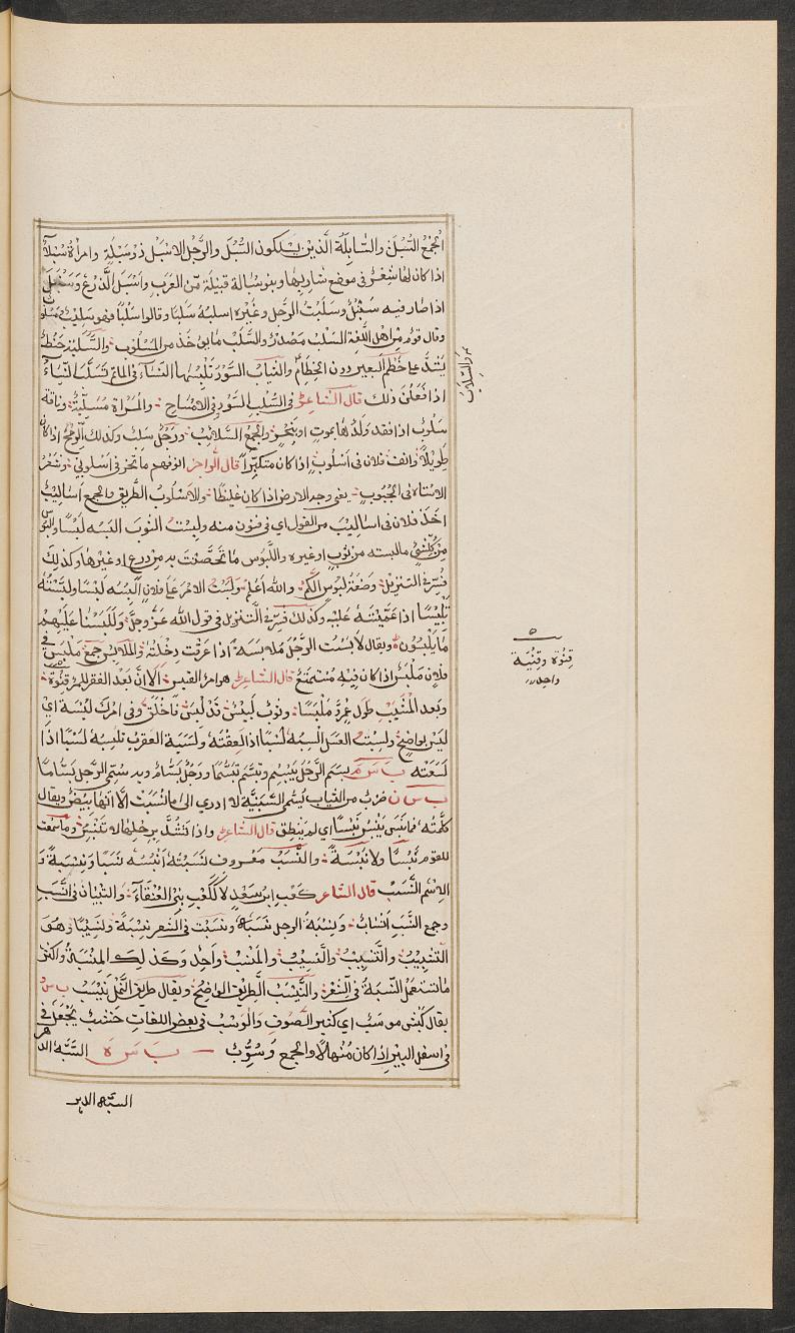 الجمع السُبُل والسّابِلَة الّذين يسلكون السُّبُل والرَّجُل الاسْبَل ذو سَبَلَةٍ وامرأة سَبْلآ
اذا كان لها شعر فى موضع شاربها وبنو سُبالة قبيلة من العرب واسْبَلَ الزرع وسَنْبَلَ
اذا صار فيه سنبل وسَلَبْتُ الرّجل وغيره اسلبُهُ سَلَبا وقالوا سَلْبًا فهو سليب ومسلو
وقال قوم من اهل اللغة السَلْبُ مَصْدَرٌ والسَّلَبُ ما يؤخذ من المسْلوب والسَّلَبة خيط
يُشَدُّ على خَطْمِ البعير دون الخِطام والثياب السّود تلبسها النسآء فى المأتم تَسَلَّبَ النسآء
اذا فَعَلْنَ ذلك قال الشاعر فى السُّلُب السُّود وفى الامْسَاحِ والمرأة مُسَلِّبَةٌ وناقة
سَلوبٌ اذا فقدَ ولَدُها بموت او نحرٍ والجمع السلائب ورَجُل سَلِبٌ وكذلك الرُّمْح اذا كان
طَوِيلًا وانف فلان فى اسْلُوبٍ اذا كان متكبّراً قال الراجز انوفهم ما الفخر فى اسلوب وشَعَرُ
الاستاه فى الجَبُوبِ يعنى وجه الارض اذا كان غليظًا والاسْلوبُ الطريق والجمع اَساليبُ
اخذ فلان فى اساليب من القول اى فى فنون منه ولبِسْتُ الثوبَ البَسُه لُبْسًا واللبوس
مِن كُلّ شىْ ما لبسته من ثوب او غيره واللَّبُوس ما تَحَصَّنْتَ به من درعٍ او غيرها وكذلك
فُسِّرَ فى التنزيل وصَنْعَةَ لبُوسٍ لكم والله اَعْلم ولَبَسْتُ الامْرَ على فلان اَلْبِسُه لَبْسًا ولَبَّسْتُهُ
تلبِيسًا اذا عَمَّيْتَهُ عليه وكذلك فُسِّرَ فى التنزيل فى قول الله عزّ وجلّ وَلَلَبَسْنا عَلَيْهِمْ
مَا يَلْبِسُونَ ويقال لابَسْتُ الرّجُلَ مُلابَسَةً اذا عَرَفْتَ دِخلَتَهُ والملابس جمع مَلْبَسٍ فى
فلان مَلْبَسٌ اذا كان فيه مُسْتَمْتَعٌ قال الشاعر هو امرؤ القيس اَلَا انّ بَعدَ الفقر للمرء قِنْوَة
وبَعدَ المَشِيبِ طُولَ عُمرٍ ومَلْبَسًا وثوب لَبِيسٌ قد لُبِسَ فاخْلَقَ وفى امرك لُبْسَة اى
ليس بواضحٍ ولَسِبْتُ العسَل السَبُهُ لَسْبًا اذا لعِقْتَهُ ولَسَبَتْهُ العقرب تلسِبُهُ لَسْبًا اذا
لسَعَتْه ب س م بَسَم الرّجُلُ يَبْسِمُ وتبسَّم تبسُّمًا ورَجُل بَسّام وبه سُمّى الرّجل بَسّاما
ب س ن ضرْبٌ من الثياب يُسَمّى السَّبَنِيَّة لا ادرى الى ما نُسِبَت الّا انها بِيضٌ ويقال
كلّمتُه فما نَبَسَ يَنْبِسُ نَبْسًا اى لم ينطق قال الشاعر واذا تُشَدّ بِرَحْلِها لا تَنْبِسُ وما سَمِعت
للقوم نَبْسًا ولا نَبْسَةً والنَّسَبُ مَعْروف نَسَبْتُهُ اَنْسُبُه نَسَبًا ونِسْبَةً و
الاسْم النَّسَبُ قال الشاعر كعب ابن سَعْدٍ لا كَكَعْبِ بنى العَنْقاءِ والتّبيان فى النَسَبِ
وجمع النّسَب انْسابٌ ونِسْبَةُ الرجل نَسَبَهُ ونَسَبْتُ فى الشعر نِسْبَةً ونَسِيبًا وهُوَ
التشبيبُ والتَّنْسِيبُ والنَّسِيبُ والمَنْسَبُ واحِدٌ وكَذلِك المنْسَبَةُ واكثر
ما تستعمل النّسبَة فى الشعْر والنَّيْسَبُ الطريق الواضِحُ ويقال طريق النّمل نَيْسَبٌ ب س و
يقال كَبْشٌ موسَّب اى كثير الصوف والوَسْبُ فى بعض اللغات خَشَبٌ يُجْعَلُ فى
فى اسفل البئر اذا كان مُنْهالًا والجمع وُسُوبٌ ب س ه السَّبَهُ الدهر
السبه الدهر
والسِّلابُ
قِنْوَة وقِنْيَة
واحد